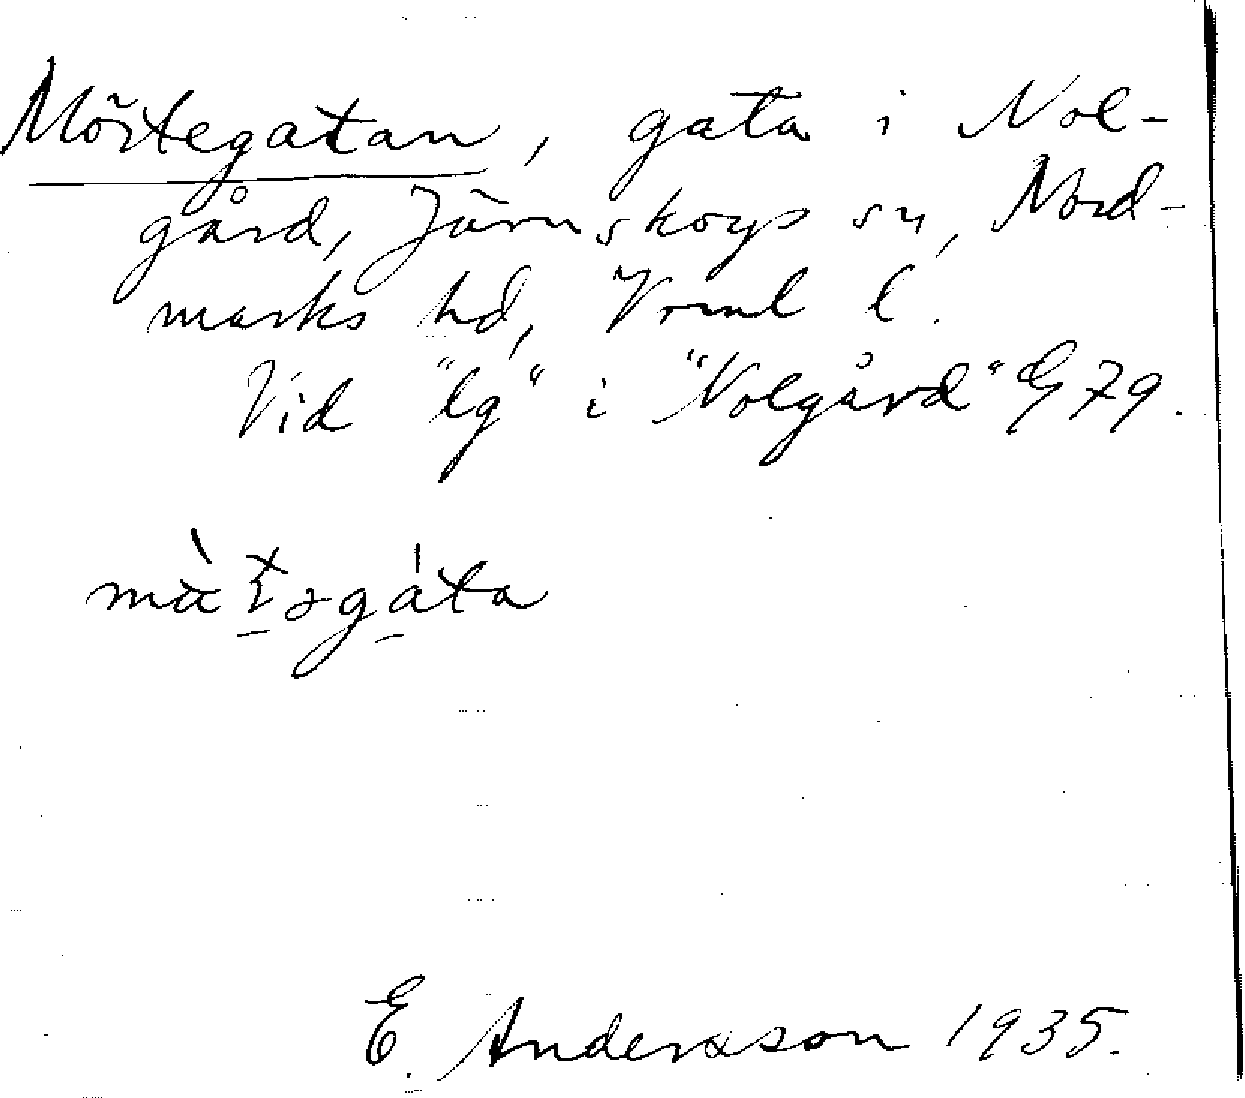 Mörtegatan, gata i Nol-
gård, Järnskogs sn, Nord-
marks hd, Vrml l.
Vid "lg" i "Nolgård" G 79.
E. Andersson 1935.